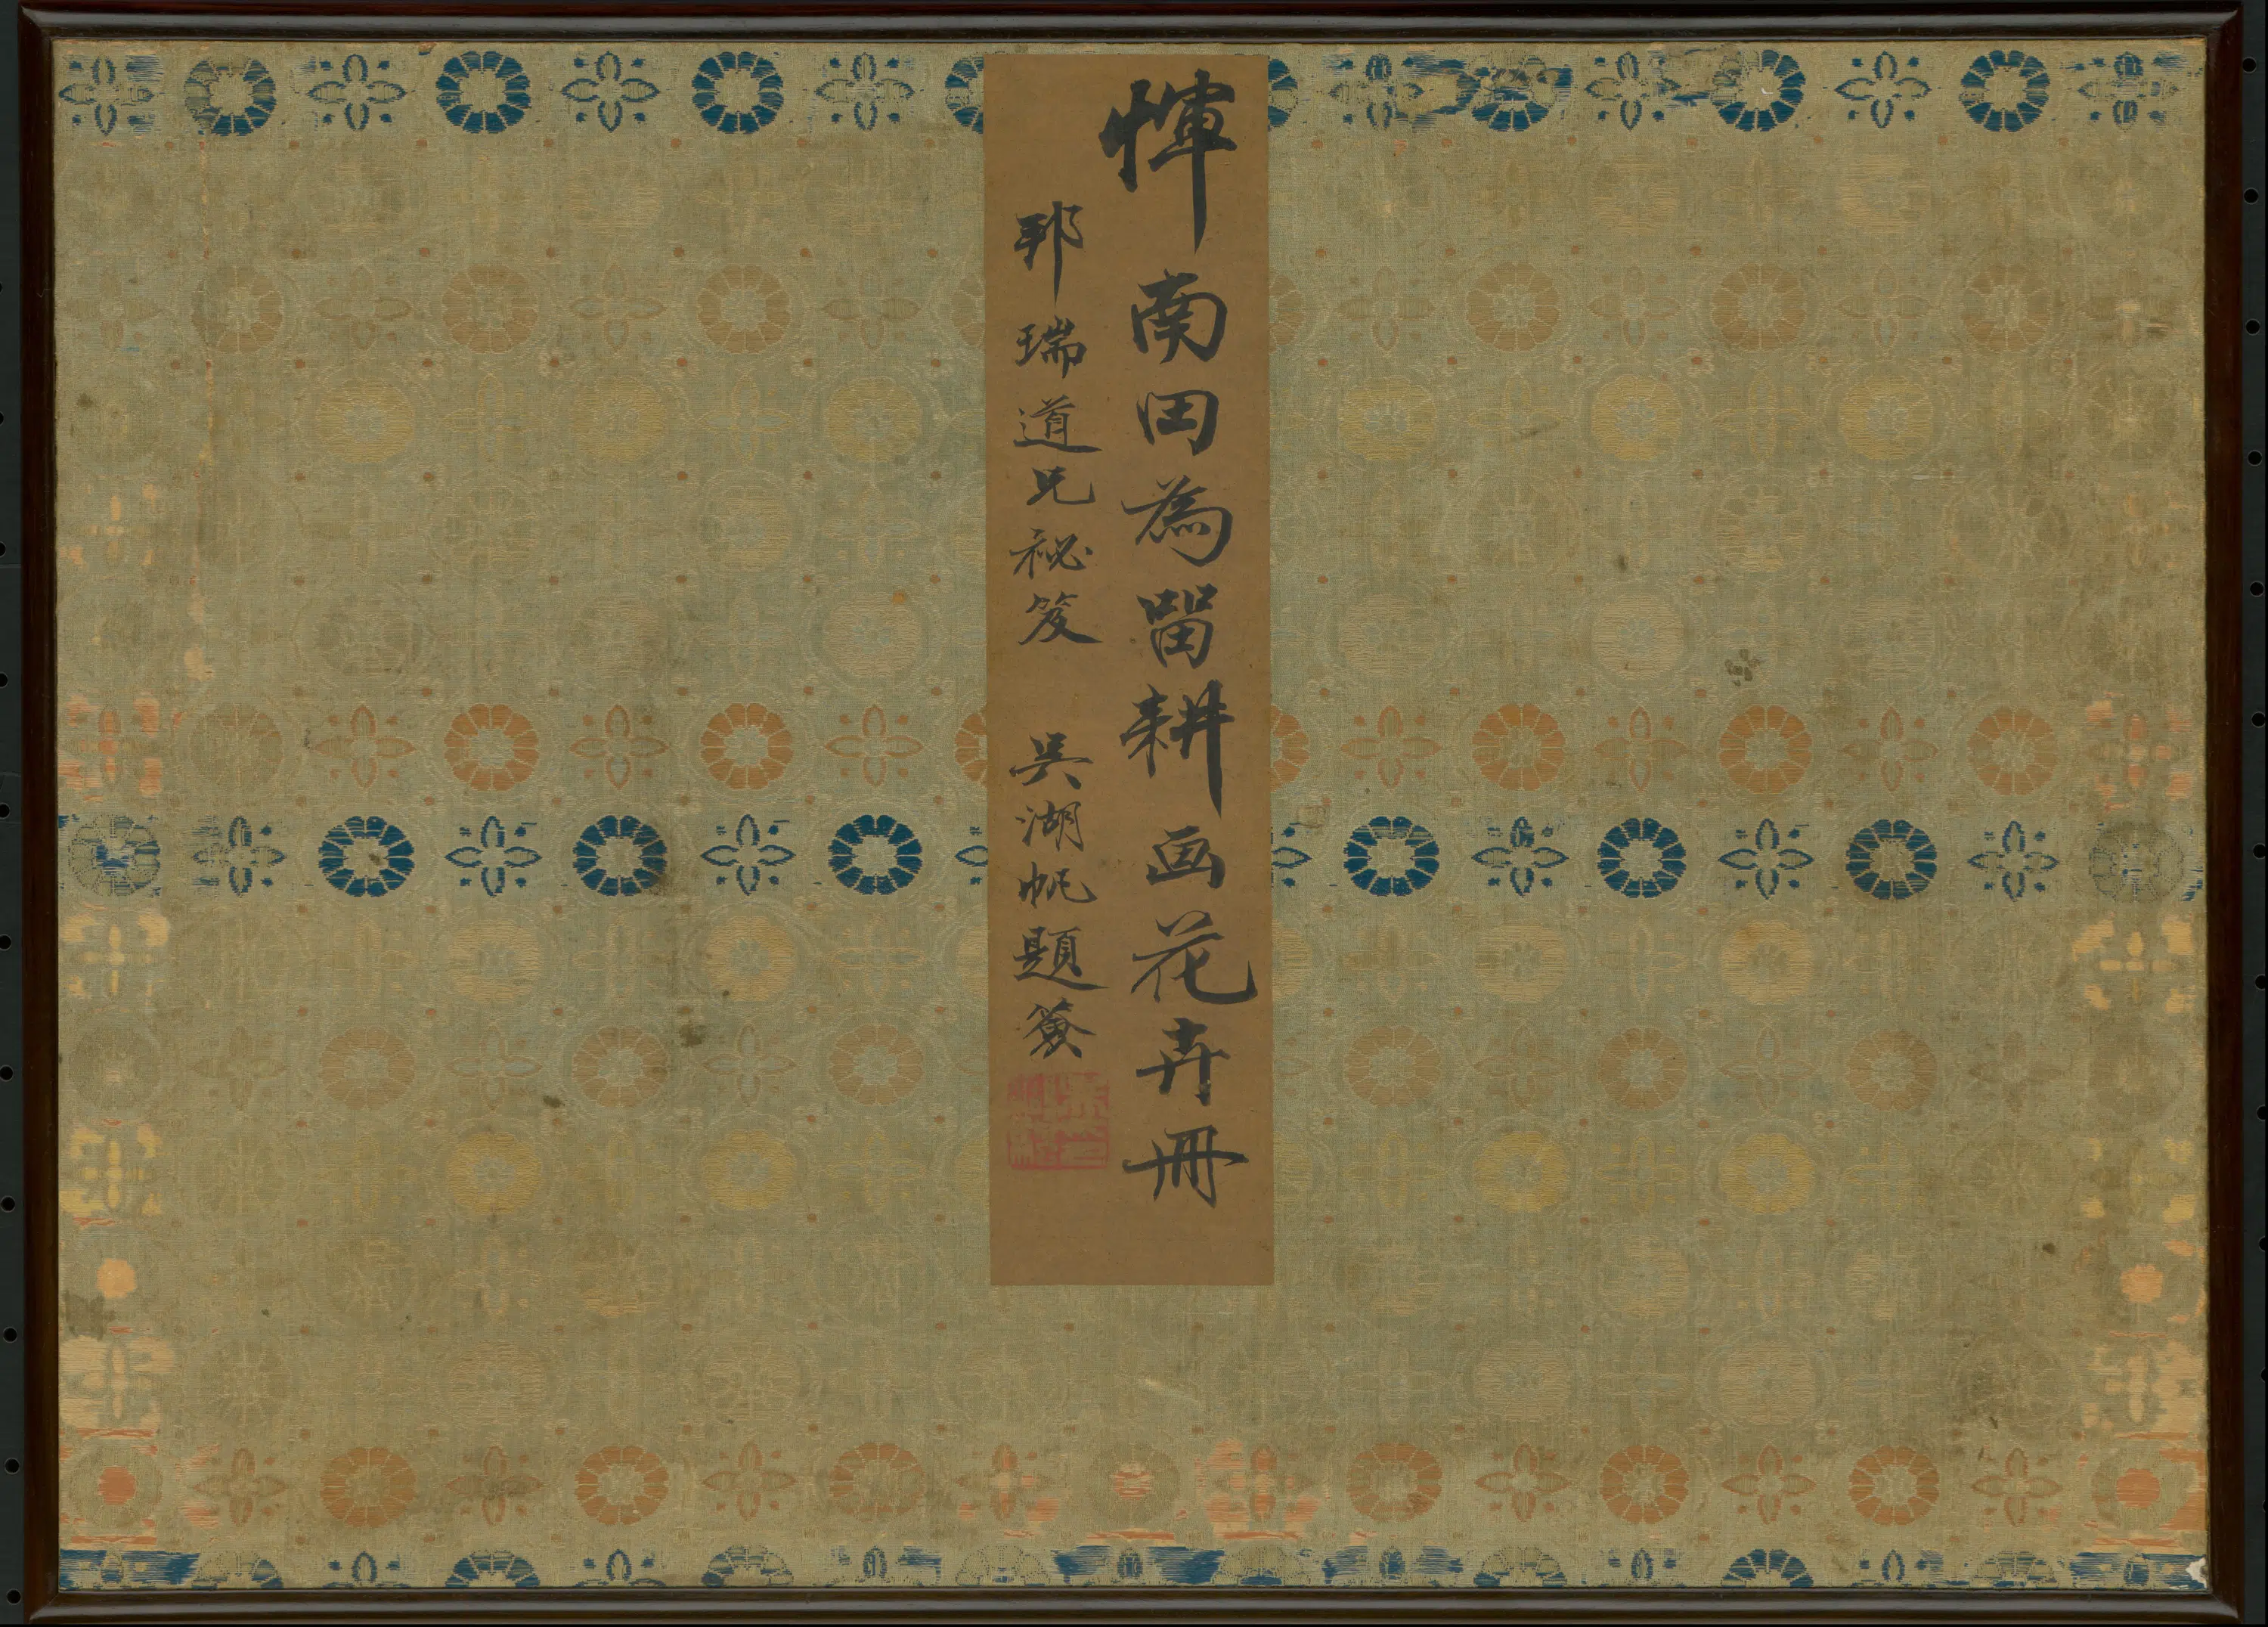 惲南田為畱耕画花卉冊
邦瑞道兄秘笈 吳湖帆題籤